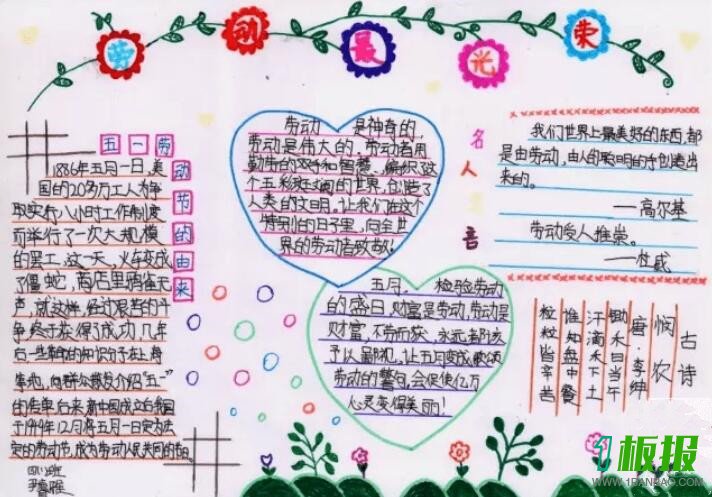 劳动最光荣
五一劳
动节的由来
1886年五月一日，美
国的20多万工人为争
取实行八小时工作制度
而举行了一次大规模
的罢工，这一天，火车变成
了僵蛇，商店里鸦雀无
声，就这样，经过艰苦的斗
争终于获得了成功，几年
后一些革命的知识分子在上海
等地，向群众散发介绍"五一"
的传单，后来新中国成立后我国
于1949年12月将五月一日定为法
定的劳动节，成为劳动人民共同的节日。
劳动 是神奇的，
劳动是伟大的。劳动者用
勤劳的双手和智慧，编织了这
个五彩斑斓的世界，创造了
人类的文明。让我们在这个
特别的日子里，向全世
界的劳动者致敬！
五月， 检验劳动
的盛日，财富是劳动，劳动是
财富，不劳而获，永远都该
予以鄙视，让五月变成歌颂
劳动的警句，会促使亿万
心灵变得美丽！
名人
音
我们世界上最美好的东西，都
是由劳动，由人的聪明的手创造出
来的。
——高尔基
劳动受人推崇。
——杜威
古诗
悯农
唐·李绅
锄禾日当午
汗滴禾下土
谁知盘中餐
粒粒皆辛苦
板报
WWW.1BANBAO.COM